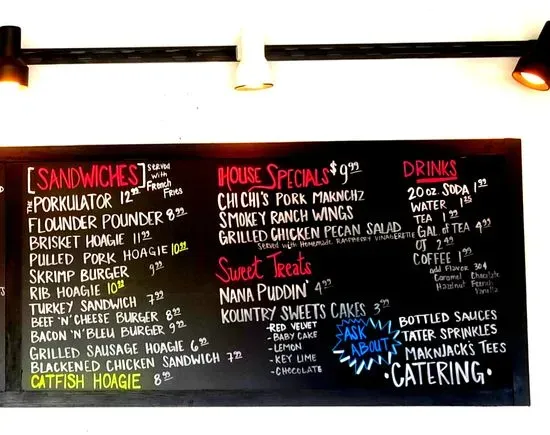 [SANDWICHES] served with French Fries
THE PORKULATOR 12.99
FLOUNDER POUNDER 8.99
BRISKET HOAGIE 11.99
PULLED PORK HOAGIE 10.99
SKRIMP BURGER 9.99
RIB HOAGIE 10.99
TURKEY SANDWICH 7.99
BEEF 'N' CHEESE BURGER 8.99
BACON 'N' BLEU BURGER 9.99
GRILLED SAUSAGE HOAGIE 6.99
BLACKENED CHICKEN SANDWICH 7.99
CATFISH HOAGIE 8.99
HOUSE SPECIALS $9.99
CHI CHI'S PORK MAKNCHZ
SMOKEY RANCH WINGS
GRILLED CHICKEN PECAN SALAD
Served with Homemade RASPBERRY VINAIGRETTE
Sweet Treats
NANA PUDDIN' 4.99
KOUNTRY SWEETS CAKES 3.99
-RED VELVET
-BABY CAKE
-LEMON
-KEY LIME
-CHOCOLATE
DRINKS
20 OZ SODA 1.99
WATER 1.25
TEA 1.99
GAL OF TEA 4.99
OJ 2.49
COFFEE 1.99
add Flavor 30¢
Caramel Chocolate
Hazelnut French Vanilla
ASK ABOUT
BOTTLED SAUCES
TATER SPRINKLES
MAKNJACK'S TEES
·CATERING·